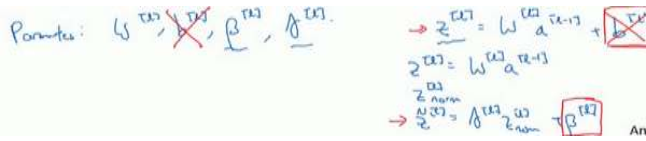 Parameters: W^[l], b^[l], β^[l], γ^[l].
→ z^[l] = W^[l] a^[l-1] + b^[l]
z^[l] = W^[l] a^[l-1]
z^[l]_norm
→ z̃^[l] = γ^[l] z^[l]_norm + β^[l]
An